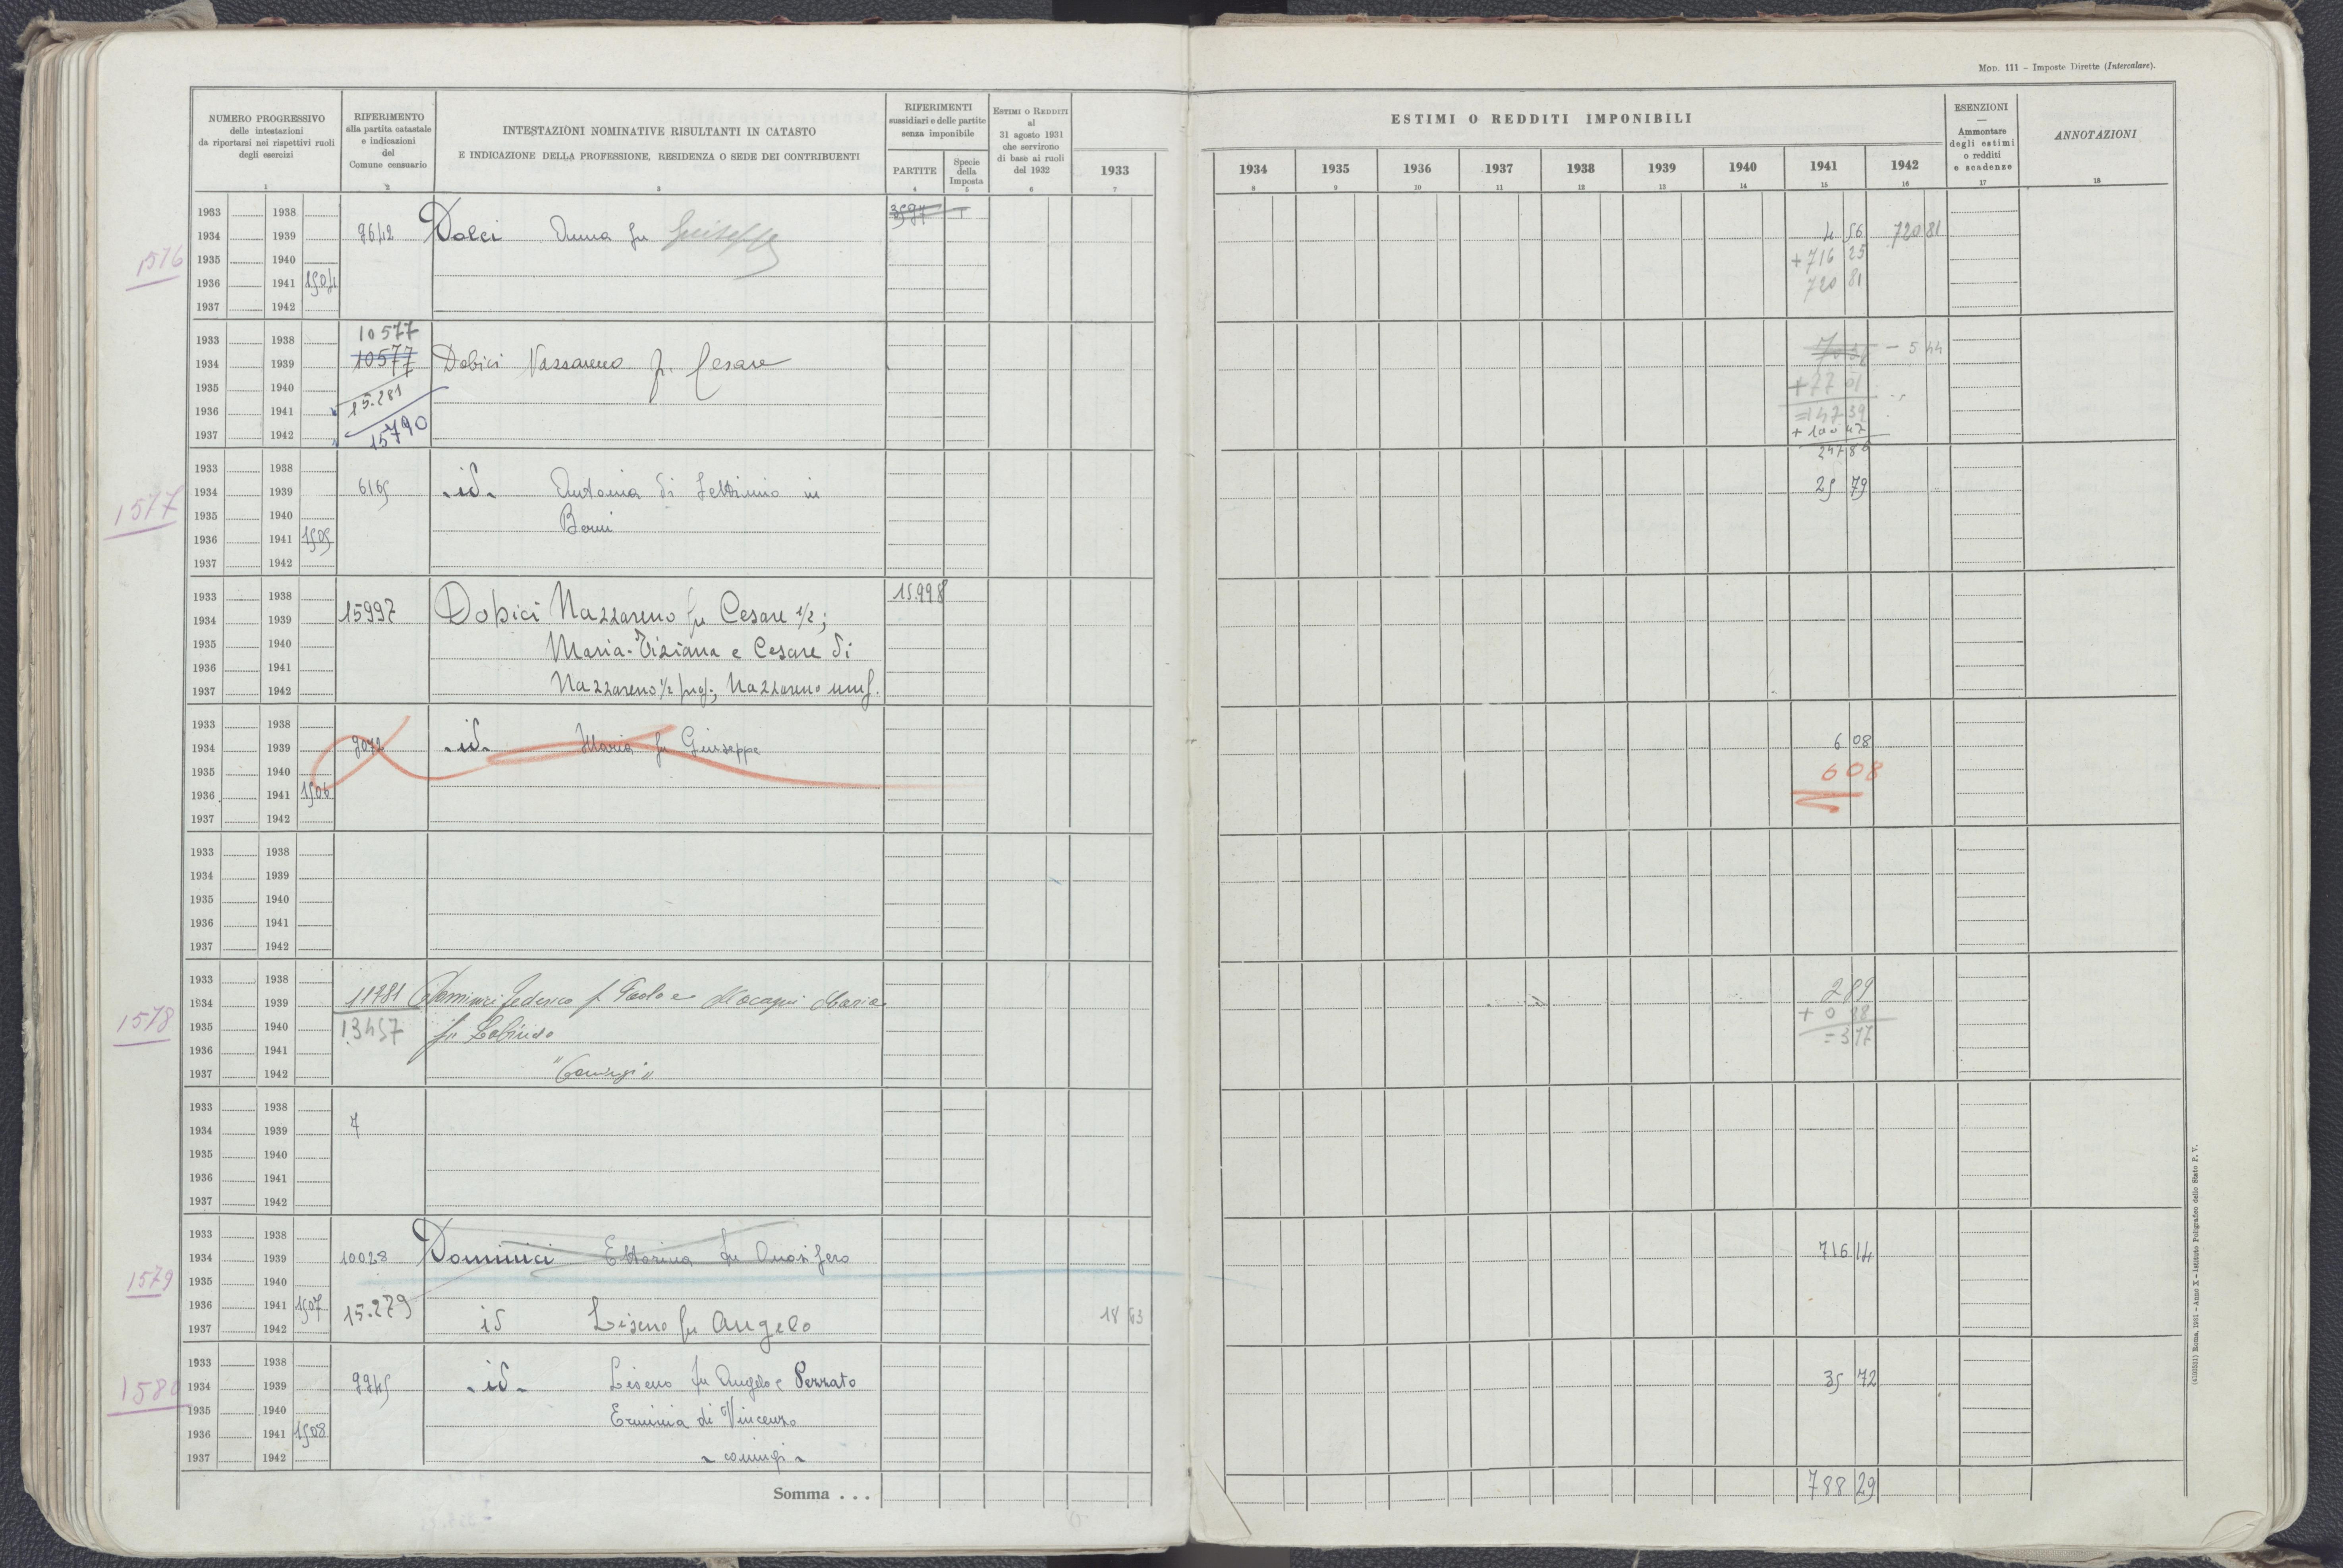 Mod. 111 – Imposte Dirette (Intercalare).
NUMERO PROGRESSIVO
delle intestazioni
da riportarsi nei rispettivi ruoli
degli esercizi
1
RIFERIMENTO
alla partita catastale
e indicazioni
del
Comune censuario
2
INTESTAZIONI NOMINATIVE RISULTANTI IN CATASTO
E INDICAZIONE DELLA PROFESSIONE, RESIDENZA O SEDE DEI CONTRIBUENTI
3
RIFERIMENTI
sussidiari e delle partite
senza imponibile
PARTITE
4
Specie
della
Imposta
5
Estimi o Redditi
al
31 agosto 1931
che servirono
di base ai ruoli
del 1932
6
1933
7
ESTIMI O REDDITI IMPONIBILI
1934 1935 1936 1937 1938 1939 1940 1941 1942
8 9 10 11 12 13 14 15 16
ESENZIONI
—
Ammontare
degli estimi
o redditi
e scadenze
17
ANNOTAZIONI
18
1933 1938 3597 1
1934 1939 9642 Dolci Anna fu Giuseppe 4 56 720 81
1576 1935 1940 + 716 25
1936 1941 1504 720 81
1937 1942
1933 1938 10577 - 5 44
1934 1939 10577 Dobici Nazzareno f. Cesare
1935 1940 15.281 + 77 01
1936 1941 = 147 39
1937 1942 15790 + 100 47
247 86
1933 1938
1577 1934 1939 6165 id. Antonia di Settimio in 25 79
1935 1940 Berni
1936 1941 1505
1937 1942
1933 1938 15.998
1934 1939 15997 Dobici Nazzareno fu Cesare 1/2;
1935 1940 Maria-Tiziana e Cesare di
1936 1941
1937 1942 Nazzareno 1/2 prop; Nazzareno usuf.
1933 1938
1934 1939 9072 id. Maria fu Giuseppe 6 08
1935 1940 6 08
1936 1941 1506
1937 1942
1933 1938
1934 1939
1935 1940
1936 1941
1937 1942
1933 1938 2 89
1934 1939 11981 Dominici Federico f. Paolo e Maria
1578 1935 1940 13457 fu + 0 88
1936 1941 = 3 77
1937 1942 "Coniugi"
1933 1938
1934 1939 7
1935 1940
1936 1941
1937 1942
1933 1938
1934 1939 10028 Dominici Ettorina fu Onorifero 716 14
1579 1935 1940
1936 1941 1507 15.279
1937 1942 id Liseno fu Angelo 18 63
1933 1938
1580 1934 1939 9945 id. Liseno fu Angelo e Pezzato 35 72
1935 1940 Erminia di Vincenzo
1936 1941 1508
1937 1942 coniugi
Somma . . . 788 29
(4102521) Roma, 1931 - Anno X - Istituto Poligrafico dello Stato P. V.